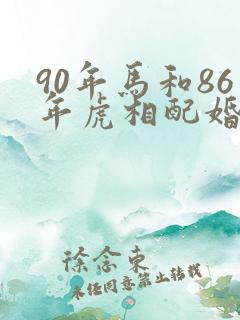 90年馬和86
年虎相配婚
徐念東
未经同意禁止转载